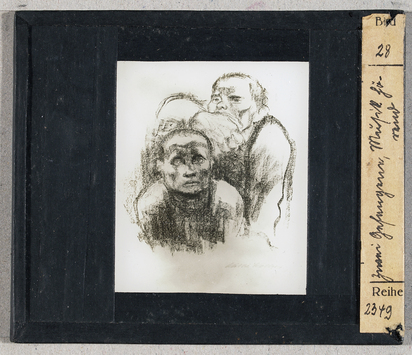 Bild
28
zwei Gefangene, Musik hö-
rend
Reihe
2349